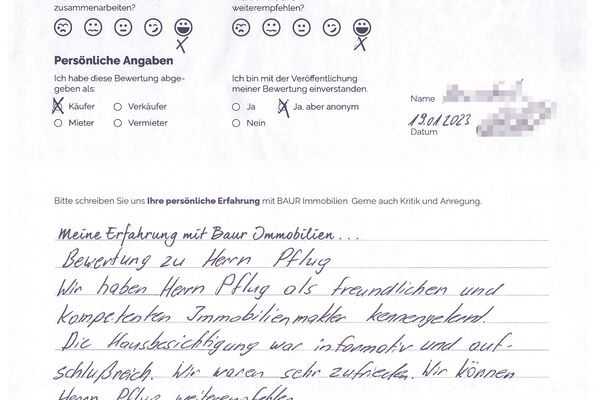 zusammenarbeiten?
weiterempfehlen?
Persönliche Angaben
Ich habe diese Bewertung abge-
geben als:
Käufer
Verkäufer
Mieter
Vermieter
Ich bin mit der Veröffentlichung
meiner Bewertung einverstanden.
Ja
Ja, aber anonym
Nein
Name
19.01.2023
Datum
Bitte schreiben Sie uns Ihre persönliche Erfahrung mit BAUR Immobilien. Gerne auch Kritik und Anregung.
Meine Erfahrung mit Baur Immobilien...
Bewertung zu Herrn Pflug
Wir haben Herrn Pflug als freundlichen und
kompetenten Immobilienmakler kennengelernt.
Die Hausbesichtigung war informativ und auf-
schlußreich. Wir waren sehr zufrieden. Wir können
Herrn Pflug weiterempfehlen